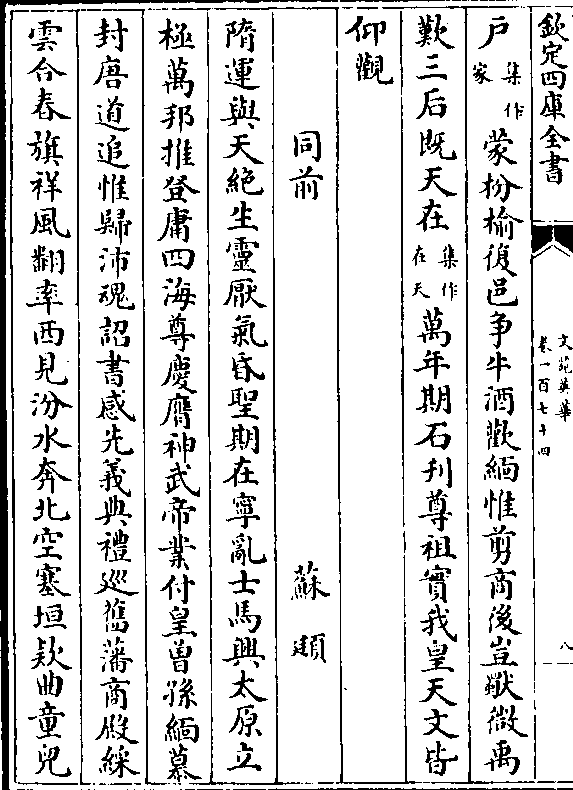 欽定四庫全書
文苑英華
卷一百七十四
八
户集作家蒙枌榆復邑争牛酒歡緬惟剪商後豈獣微禹
歎三后既天在集作在天萬年期石刋尊祖實我皇天文皆
仰觀
同前
蘇頲
隋運與天絶生靈厭氣昏聖期在寧亂士馬興太原立
極萬邦推登庸四海尊慶膺神武帝業付皇曽孫緬慕
封唐道追惟歸沛魂詔書感先義典禮巡舊藩商殷綵
雲合春旗祥風翻率西見汾水奔北空塞垣欵曲童兒